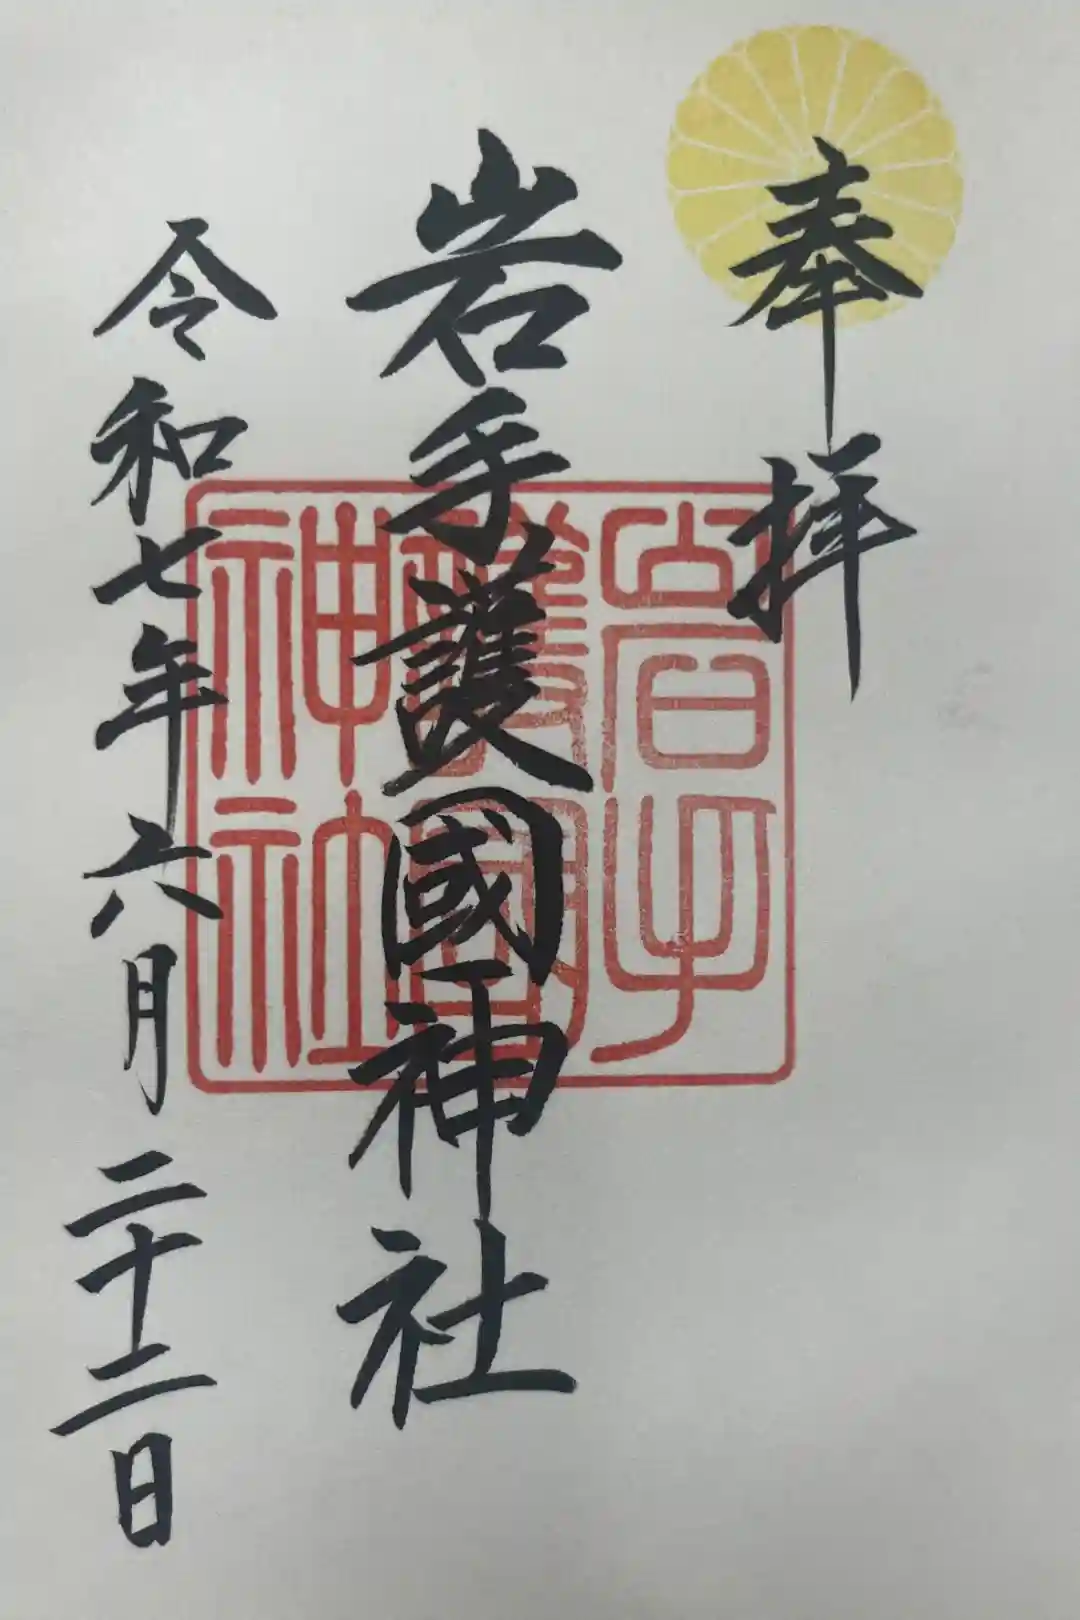 奉拝
岩手護國神社
令和七年六月二十二日
岩手
護國
神社